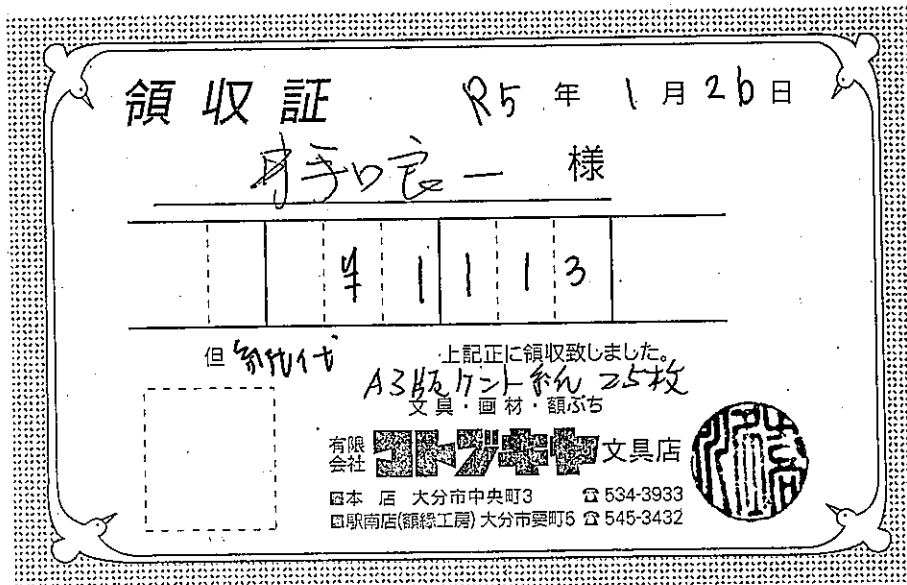 領収証 R5年1月26日
井手口良一 様
¥1113
但 紙代 上記正に領収致しました。
A3版ケント紙 25枚
文具・画材・額ぶち
有限会社 コトブキヤ文具店
本店 大分市中央町3 ☎534-3933
駅南店(額縁工房) 大分市要町5 ☎545-3432